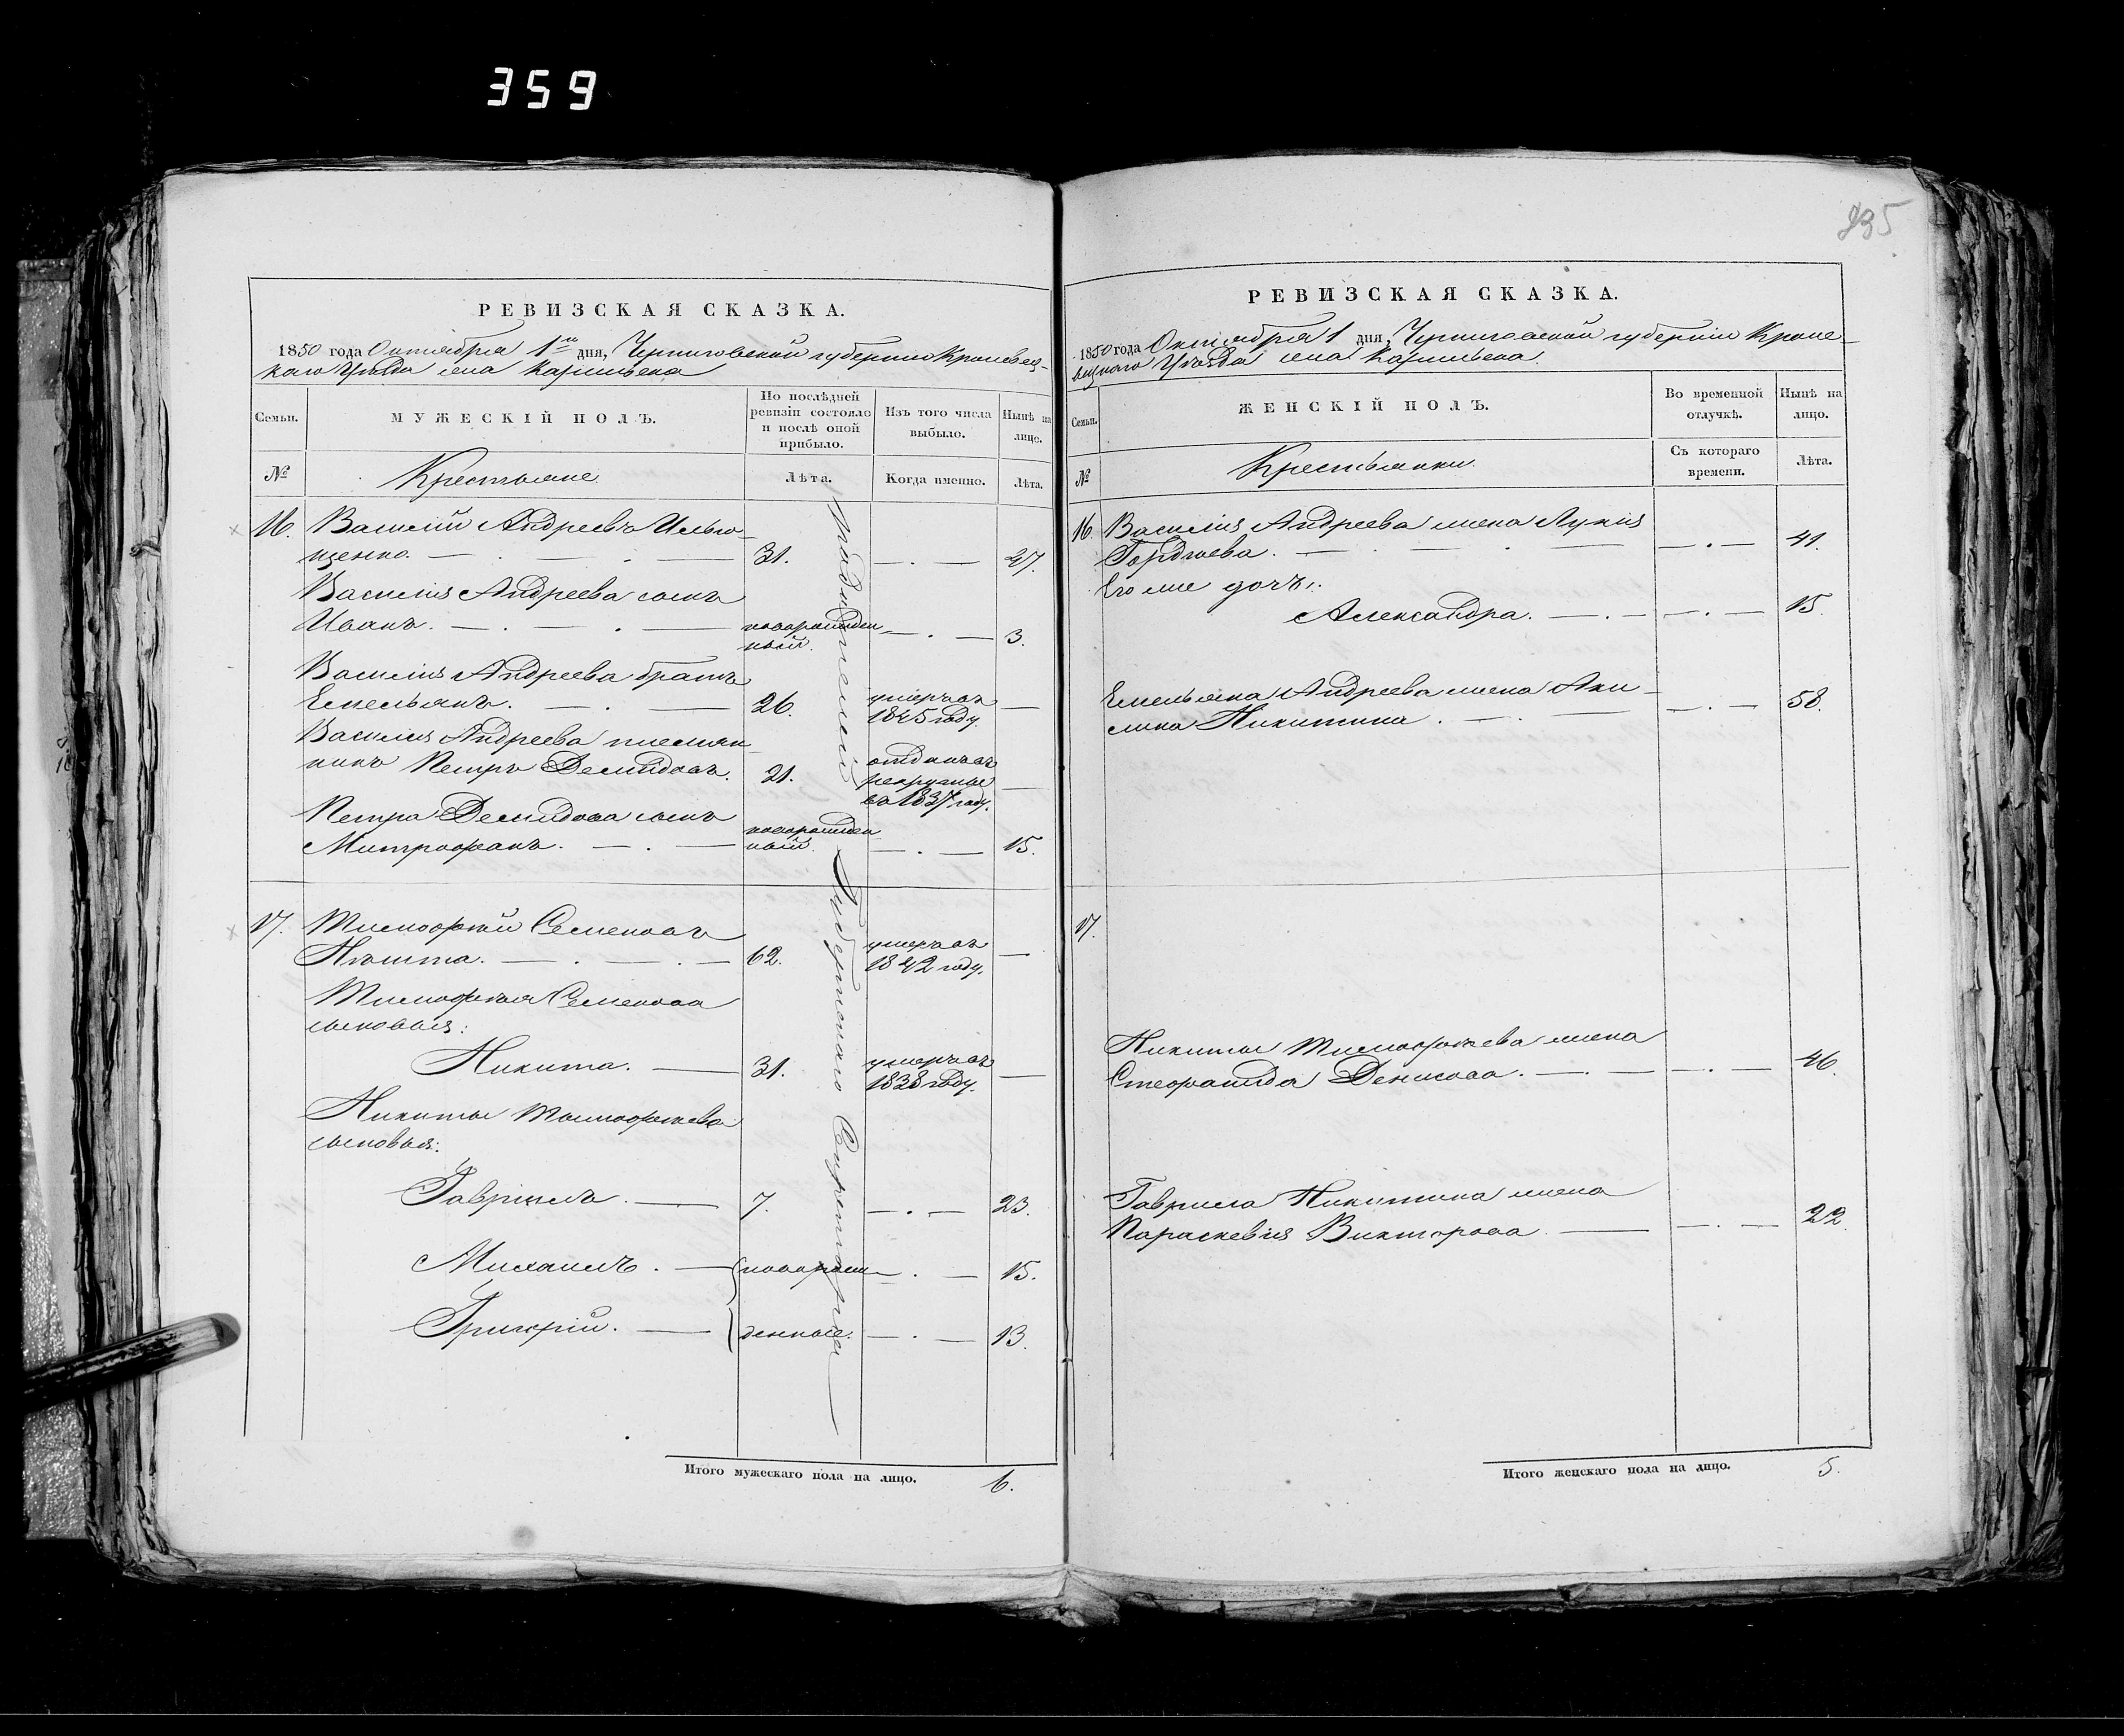 359
835
РЕВИЗСКАЯ СКАЗКА.
1850 года Октября 1го дня, Черниговской губернии Кролевец-
каго Уѣзда села
Семьи.
МУЖЕСКІЙ ПОЛЪ.
По послѣдней ревизіи состояло и послѣ оной прибыло.
Изъ того числа выбыло.
Нынѣ на лицо.
№
Крестьяне.
Лѣта.
Когда именно.
Лѣта.
16. Василій Андреевъ Илью-
щенко. — 31. — 47.
Василія Андреева сынъ
Иванъ. — новорожден- — 3.
ный.
Василія Андреева братъ
Емельянъ. — 26. умеръ въ —
1845 году.
Василія Андреева племян-
никъ Петръ Демидовъ. 21. отданъ въ
рекруты —
въ 1837 году.
Петра Демидова сынъ
Митрофанъ. — новорожден- — 15.
ный.
17. Тимофѣй Семеновъ
62. умеръ въ —
1842 году.
Тимофѣя Семенова
сыновья:
Никита. — 31. умеръ въ —
1838 году.
Никиты Тимофѣева
сыновья:
Гавріилъ. — 7. — 23.
Михаилъ. — новорож- — 15.
Григорій. — денные. — 13.
Губернскаго Секретаря
Итого мужескаго пола на лицо. 6.
РЕВИЗСКАЯ СКАЗКА.
1850 года Октября 1 дня, Черниговской губерніи Кроле-
вецкаго Уѣзда села
Семьи.
ЖЕНСКІЙ ПОЛЪ.
Во временной отлучкѣ.
Нынѣ на лицо.
№
Крестьянки.
Съ котораго времени.
Лѣта.
16. Василія Андреева жена Лукія
Гордѣева. — 41.
Его же дочь:
Александра. — 15.
Емельяна Андреева жена Аки-
лина Никитина. — 58.
17.
Никиты Тимофѣева жена
Стефанида Денисова. — 46.
Гаврила Никитина жена
Параскевія Викторова — 22.
Итого женскаго пола на лицо. 5.